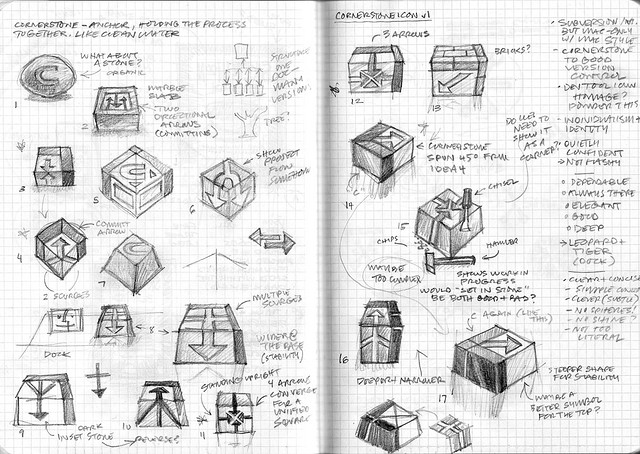 CORNERSTONE - ANCHOR, HOLDING THE PROCESS
TOGETHER. LIKE CLEAN WATER
WHAT ABOUT
A STONE?
ORGANIC
1
MARBLE
SLAB
2
TWO
DIRECTIONAL
ARROWS
(COMMITTING)
ONE
DOC
MANY
VERSIONS
TREE?
3
5
6
SHOW
PROJECT
FLOW
SOMEHOW
4
COMMIT
ARROW
2 SOURCES
7
DOCK
8
MULTIPLE
SOURCES
WIDER @
THE BASE
(STABILITY)
9
DARK
INSET STONE
10
REVERSE?
STANDING UPRIGHT
11
4 ARROWS
CONVERGE
FOR A
UNIFIED
SQUARE
CORNERSTONE ICON V1
3 ARROWS
12
BRICKS?
13
14
CORNERSTONE
SPUN 45° FROM
IDEA 4
DO WE
NEED TO
SHOW IT
AS A
CORNER?
15
CHISEL
CHIPS
HAMMER
MAYBE
TOO COMPLEX
SHOWS WORK IN
PROGRESS
WOULD "SET IN STONE"
BE BOTH GOOD + BAD?
16
DEEPER + NARROWER
C AGAIN (LIKE
THIS)
17
STEEPER SHAPE
FOR STABILITY
MAYBE A
BETTER SYMBOL
FOR THE TOP?
BUT MAC-ONLY
W/ MAC STYLE
- CORNERSTONE
TO GOOD
VERSION
CONTROL
• DEV TOOL ICON
HOMAGE?
PONDER THIS
• INDIVIDUALISM +
IDENTITY
• QUIETLY
CONFIDENT
→ NOT FLASHY
○ DEPENDABLE
○ ALWAYS THERE
○ ELEGANT
○ GOOD
○ DEEP
→ LEOPARD +
TIGER
(DOCK)
• CLEAR + CONCISE
- CLEVER (SUBTLE)
- NO SHINE?
- NOT TOO
LITERAL